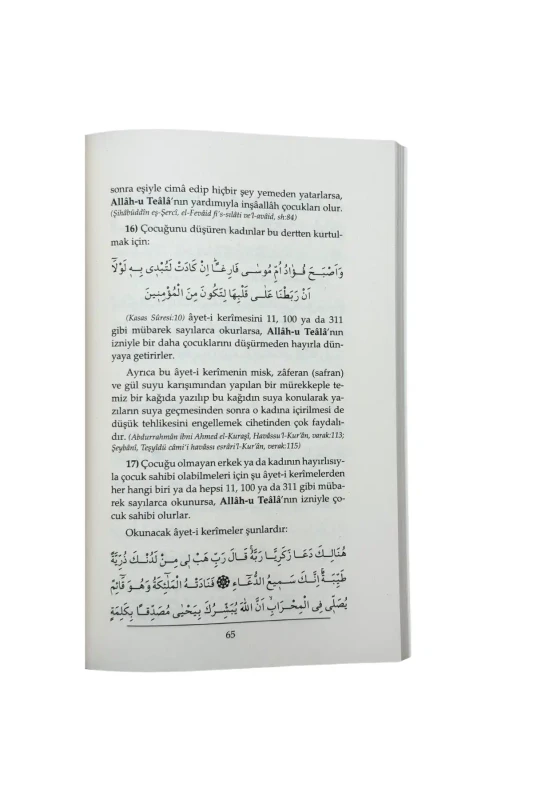 sonra eşiyle cimâ edip hiçbir şey yemeden yatarlarsa,
Allâh-u Teâlâ'nın yardımıyla inşâallâh çocukları olur.
(Şihâbüddîn eş-Şercî, el-Fevâid fi's-sılâti ve'l-avâid, sh:84)
16) Çocuğunu düşüren kadınlar bu dertten kurtul-
mak için:
وَاَصْبَحَ فُؤٰادُ اُمِّ مُوسٰى فَارِغًاۜ اِنْ كَادَتْ لَتُبْدٖي بِهٖ لَوْلَٓا
اَنْ رَبَطْنَا عَلٰى قَلْبِهَا لِتَكُونَ مِنَ الْمُؤْمِنٖينَ
(Kasas Sûresi:10) âyet-i kerîmesini 11, 100 ya da 311
gibi mübarek sayılarca okurlarsa, Allâh-u Teâlâ'nın
izniyle bir daha çocuklarını düşürmeden hayırla dün-
yaya getirirler.
Ayrıca bu âyet-i kerîmenin misk, zâferan (safran)
ve gül suyu karışımından yapılan bir mürekkeple te-
miz bir kağıda yazılıp bu kağıdın suya konularak ya-
zıların suya geçmesinden sonra o kadına içirilmesi de
düşük tehlikesini engellemek cihetinden çok faydalı-
dır. (Abdurrahmân ibni Ahmed el-Kuraşî, Havâssu'l-Kur'ân, varak:113;
Şeybânî, Teşyîdü câmi'i havâssı esrâri'l-Kur'ân, verak:115)
17) Çocuğu olmayan erkek ya da kadının hayırlısıy-
la çocuk sahibi olabilmeleri için şu âyet-i kerîmelerden
her hangi biri ya da hepsi 11, 100 ya da 311 gibi müba-
rek sayılarca okunursa, Allâh-u Teâlâ'nın izniyle ço-
cuk sahibi olurlar.
Okunacak âyet-i kerîmeler şunlardır:
هُنَالِكَ دَعَا زَكَرِيَّا رَبَّهُۚ قَالَ رَبِّ هَبْ لٖي مِنْ لَدُنْكَ ذُرِّيَّةً
طَيِّبَةًۚ اِنَّكَ سَمٖيعُ الدُّعَٓاءِ ۞ فَنَادَتْهُ الْمَلٰٓئِكَةُ وَهُوَ قَٓائِمٌ
يُصَلّٖي فِي الْمِحْرَابِۙ اَنَّ اللّٰهَ يُبَشِّرُكَ بِيَحْيٰى مُصَدِّقًا بِكَلِمَةٍ
65